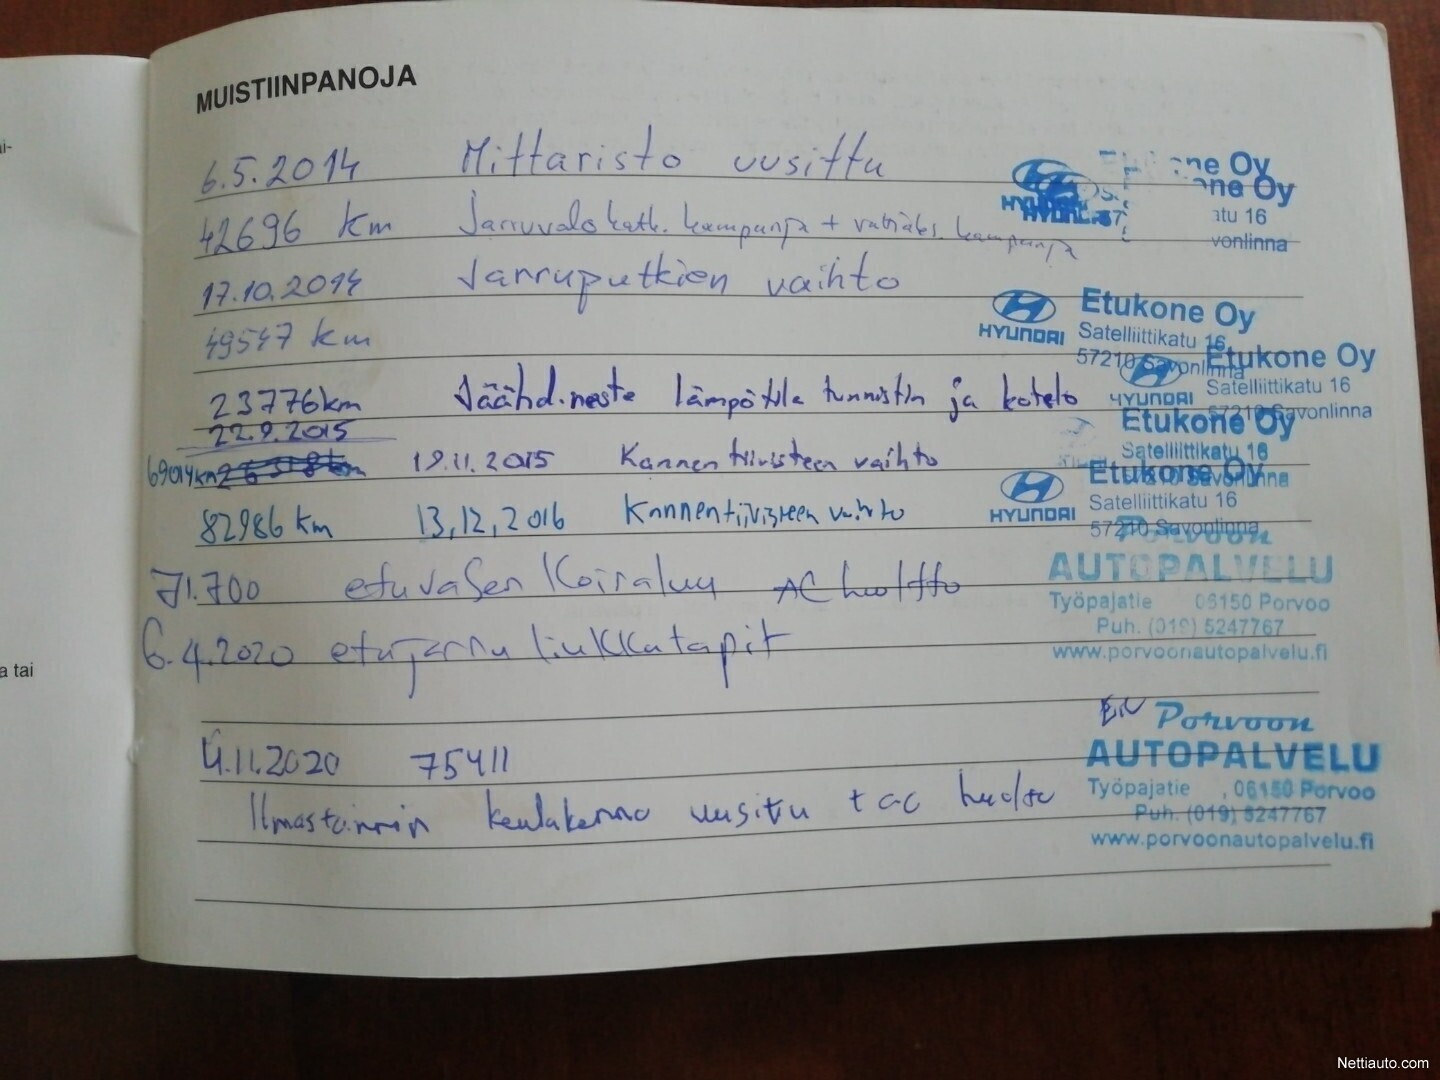 i-
a tai
MUISTIINPANOJA
6.5.2014 Mittaristo uusittu
42696 km Jarruvalokatk. kampanja + vakiäks. kampanja
17.10.2014 Jarruputkien vaihto
49547 km
23776km Jäähd.neste lämpötila tunnistin ja kotelo
22.9.2015
69014km 19.11.2015 Kannentiivisteen vaihto
82986 km 13,12,2016 Kannentiivisteen vaihto
71.700 etuvasen Koiraluu AC huolto
6.4.2020 etujarru liukkatapit
4.11.2020 75411
Ilmastoinnin keulakenno uusittu + ac huolto
ne Oy
ne Oy
HYUNDAI
atu 16
vonlinna
HYUNDAI
Etukone Oy
Satelliittikatu 16
57210 Savonlinna
HYUNDAI
Etukone Oy
Satelliittikatu 16
57210 Savonlinna
Etukone Oy
Satelliittikatu 16
HYUNDAI
Etukone Oy
Satelliittikatu 16
57210 Savonlinna
Porvoon
AUTOPALVELU
Työpajatie 06150 Porvoo
Puh. (019) 5247767
www.porvoonautopalvelu.fi
Porvoon
AUTOPALVELU
Työpajatie , 06150 Porvoo
Puh. (019) 5247767
www.porvoonautopalvelu.fi
Nettiauto.com